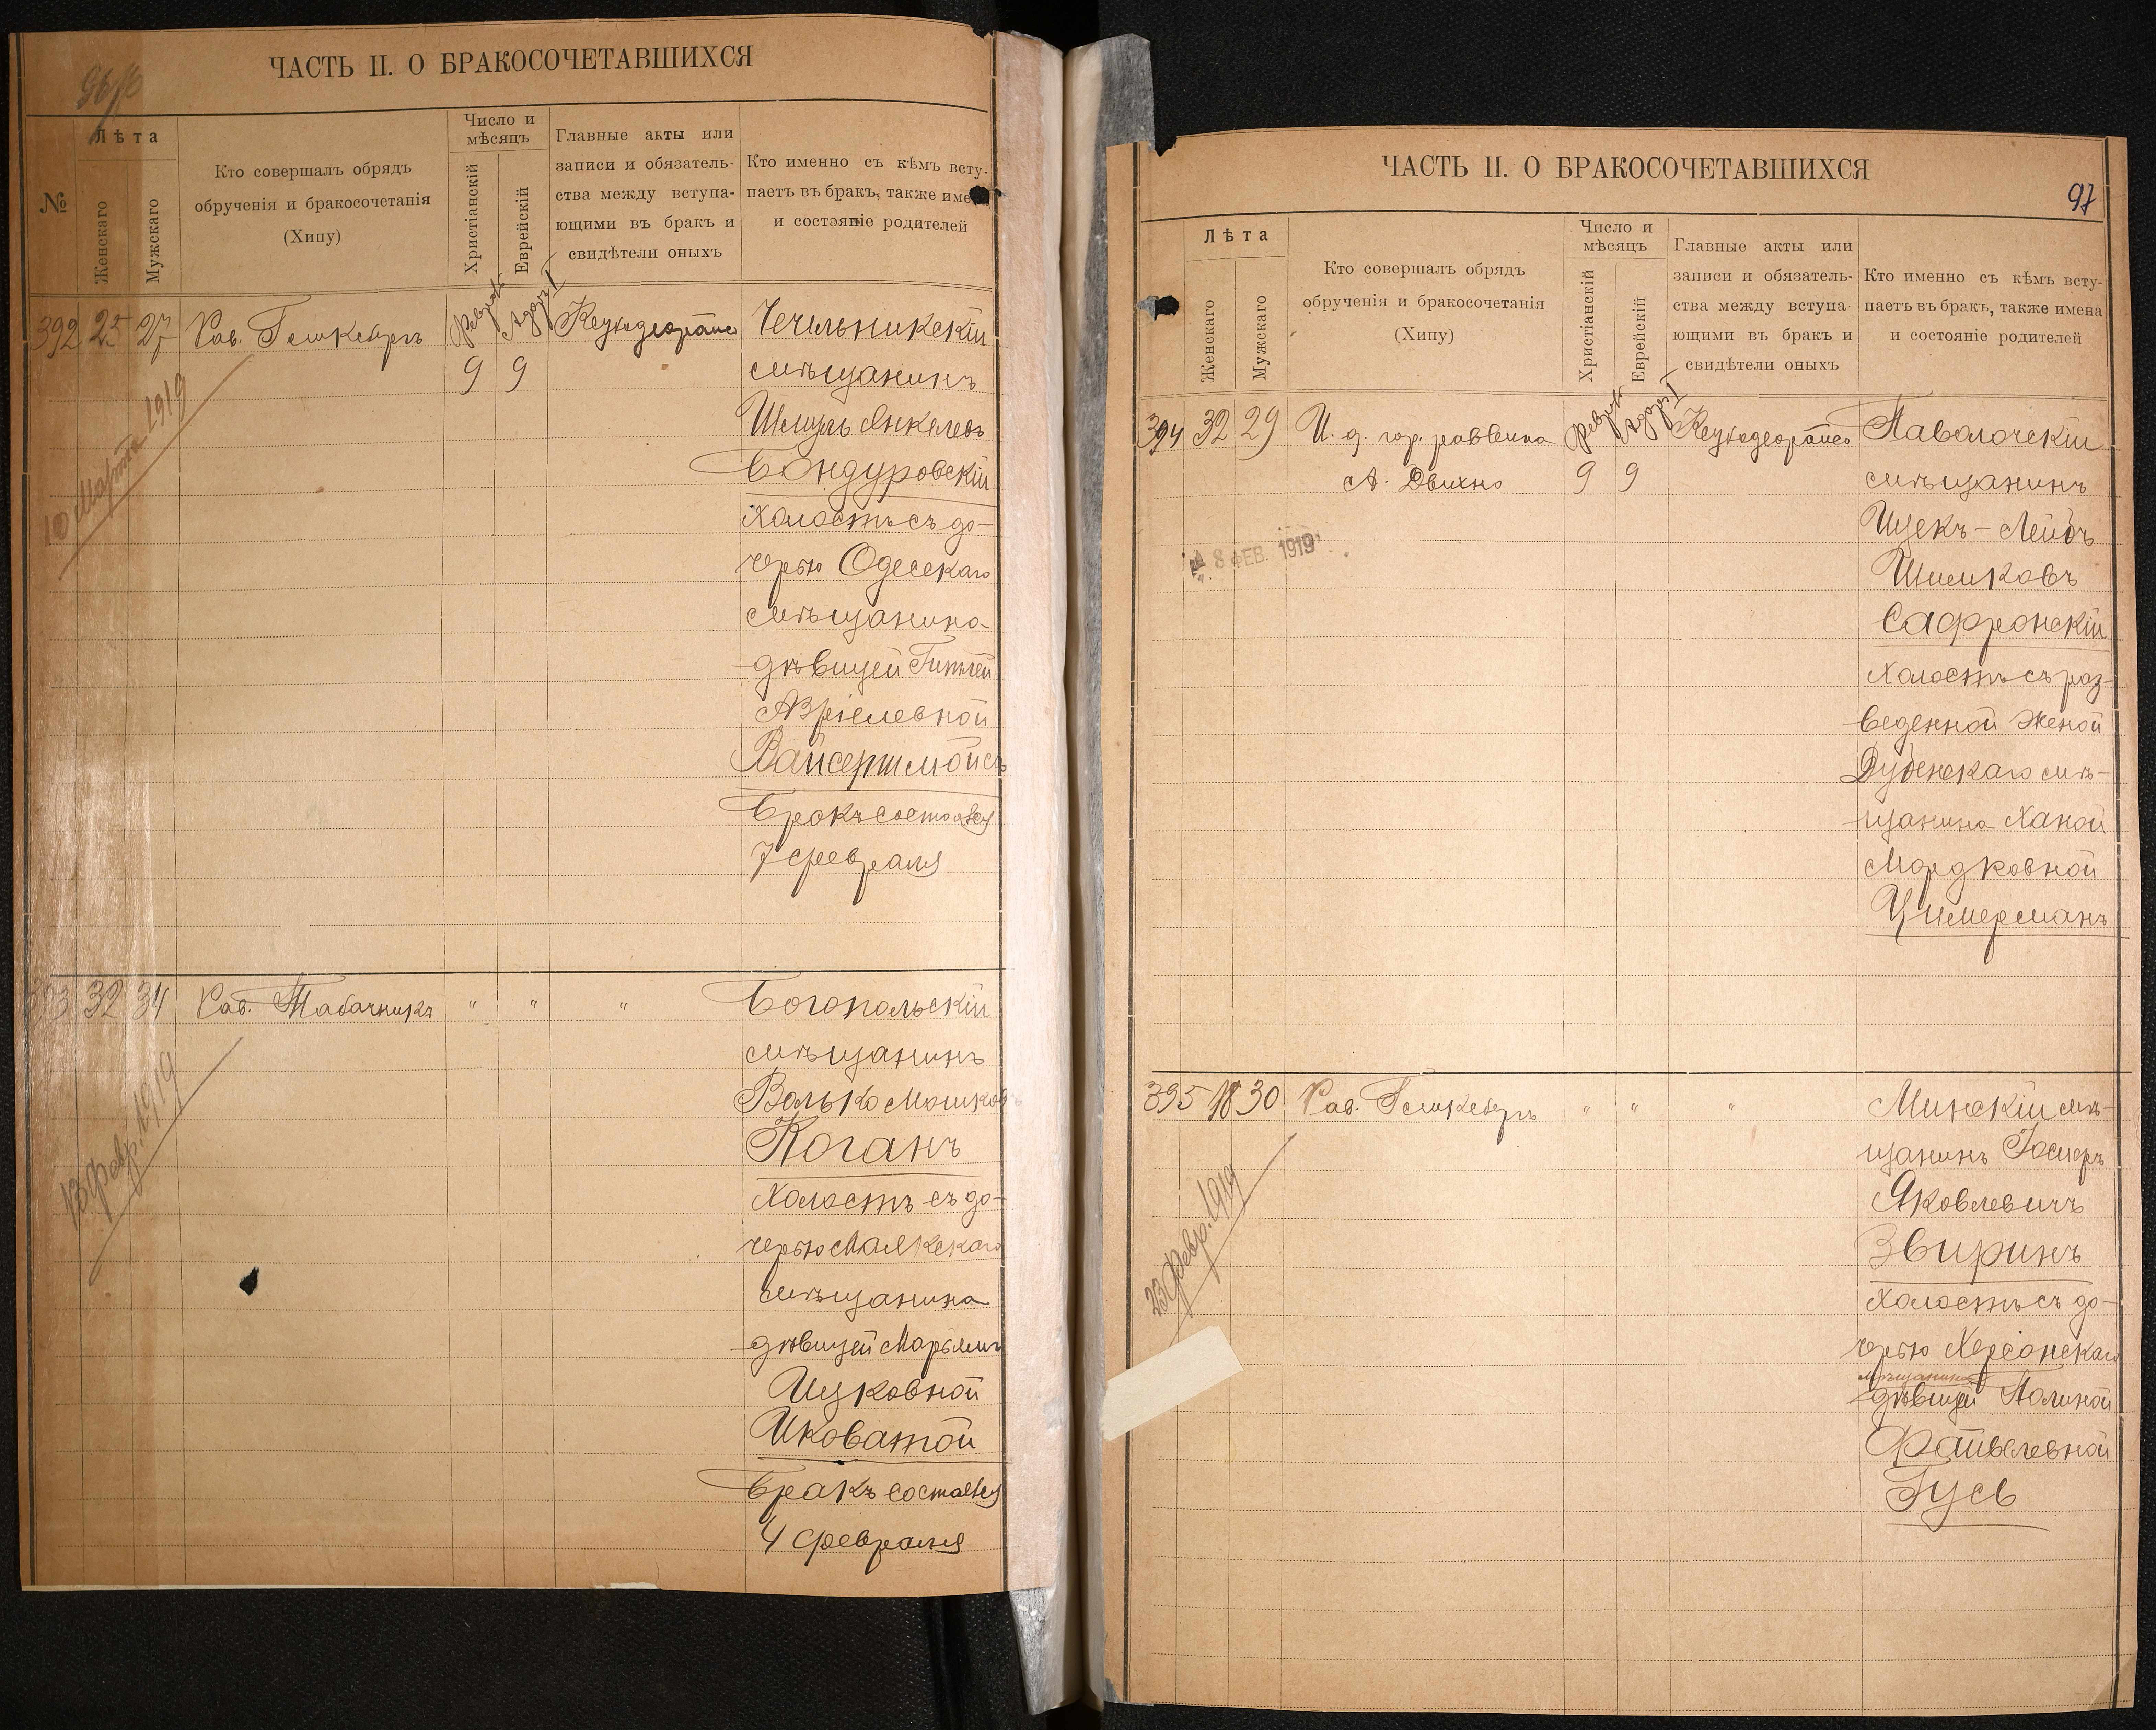 ЧАСТЬ II. О БРАКОСОЧЕТАВШИХСЯ
№
Лѣта
Женскаго
Мужскаго
Кто совершалъ обрядъ
обрученія и бракосочетанія
(Хипу)
Число и
мѣсяцъ
Христіанскій
Еврейскій
Главные акты или
записи и обязатель-
ства между вступа-
ющими въ бракъ и
свидѣтели оныхъ
Кто именно съ кѣмъ всту-
паетъ въ бракъ, также име
и состояніе родителей
392 25 27 Рав. Февраль Адаръ I
9 9
10 Марта 1919
Чечельникскій
мѣщанинъ
Шмуль Янкелевъ
Бондуровскій
холостъ съ до-
черью Одесскаго
мѣщанина
дѣвицей Гитлей
Азріелевной
Вайсерштойсъ
Бракъ состоялся
7 февраля
393 32 34 Рав. Табачникъ " " "
13 Февр. 1919
Богопольскій
мѣщанинъ
Волько Мошковъ
Коганъ
холостъ съ до-
черью Маякскаго
мѣщанина
дѣвицей Марьямъ
Ицковной
Иковатой
Бракъ состоялся
4 февраля
ЧАСТЬ II. О БРАКОСОЧЕТАВШИХСЯ
97
Лѣта
Женскаго
Мужскаго
Кто совершалъ обрядъ
обрученія и бракосочетанія
(Хипу)
Число и
мѣсяцъ
Христіанскій
Еврейскій
Главные акты или
записи и обязатель-
ства между вступа-
ющими въ бракъ и
свидѣтели оныхъ
Кто именно съ кѣмъ всту-
паетъ въ бракъ, также имена
и состояніе родителей
394 32 29 И. д. гор. раввина Февраль Адаръ I
А. Двихно 9 9
8 ФЕВ. 1919
Паволочскій
мѣщанинъ
Ицекъ-Лейбъ
Шимковъ
Сафронскій
холостъ съ раз-
веденной женой
Дубенскаго мѣ-
щанина Ханой
Мордковной
Цимерманъ
395 18 30 Рав. " " "
23 Февр. 1919
Минскій мѣ-
щанинъ Іосифъ
Яковлевичъ
Звиринъ
холостъ съ до-
черью Херсонскаго
мѣщанина
дѣвицей Полиной
Файвелевной
Гусь